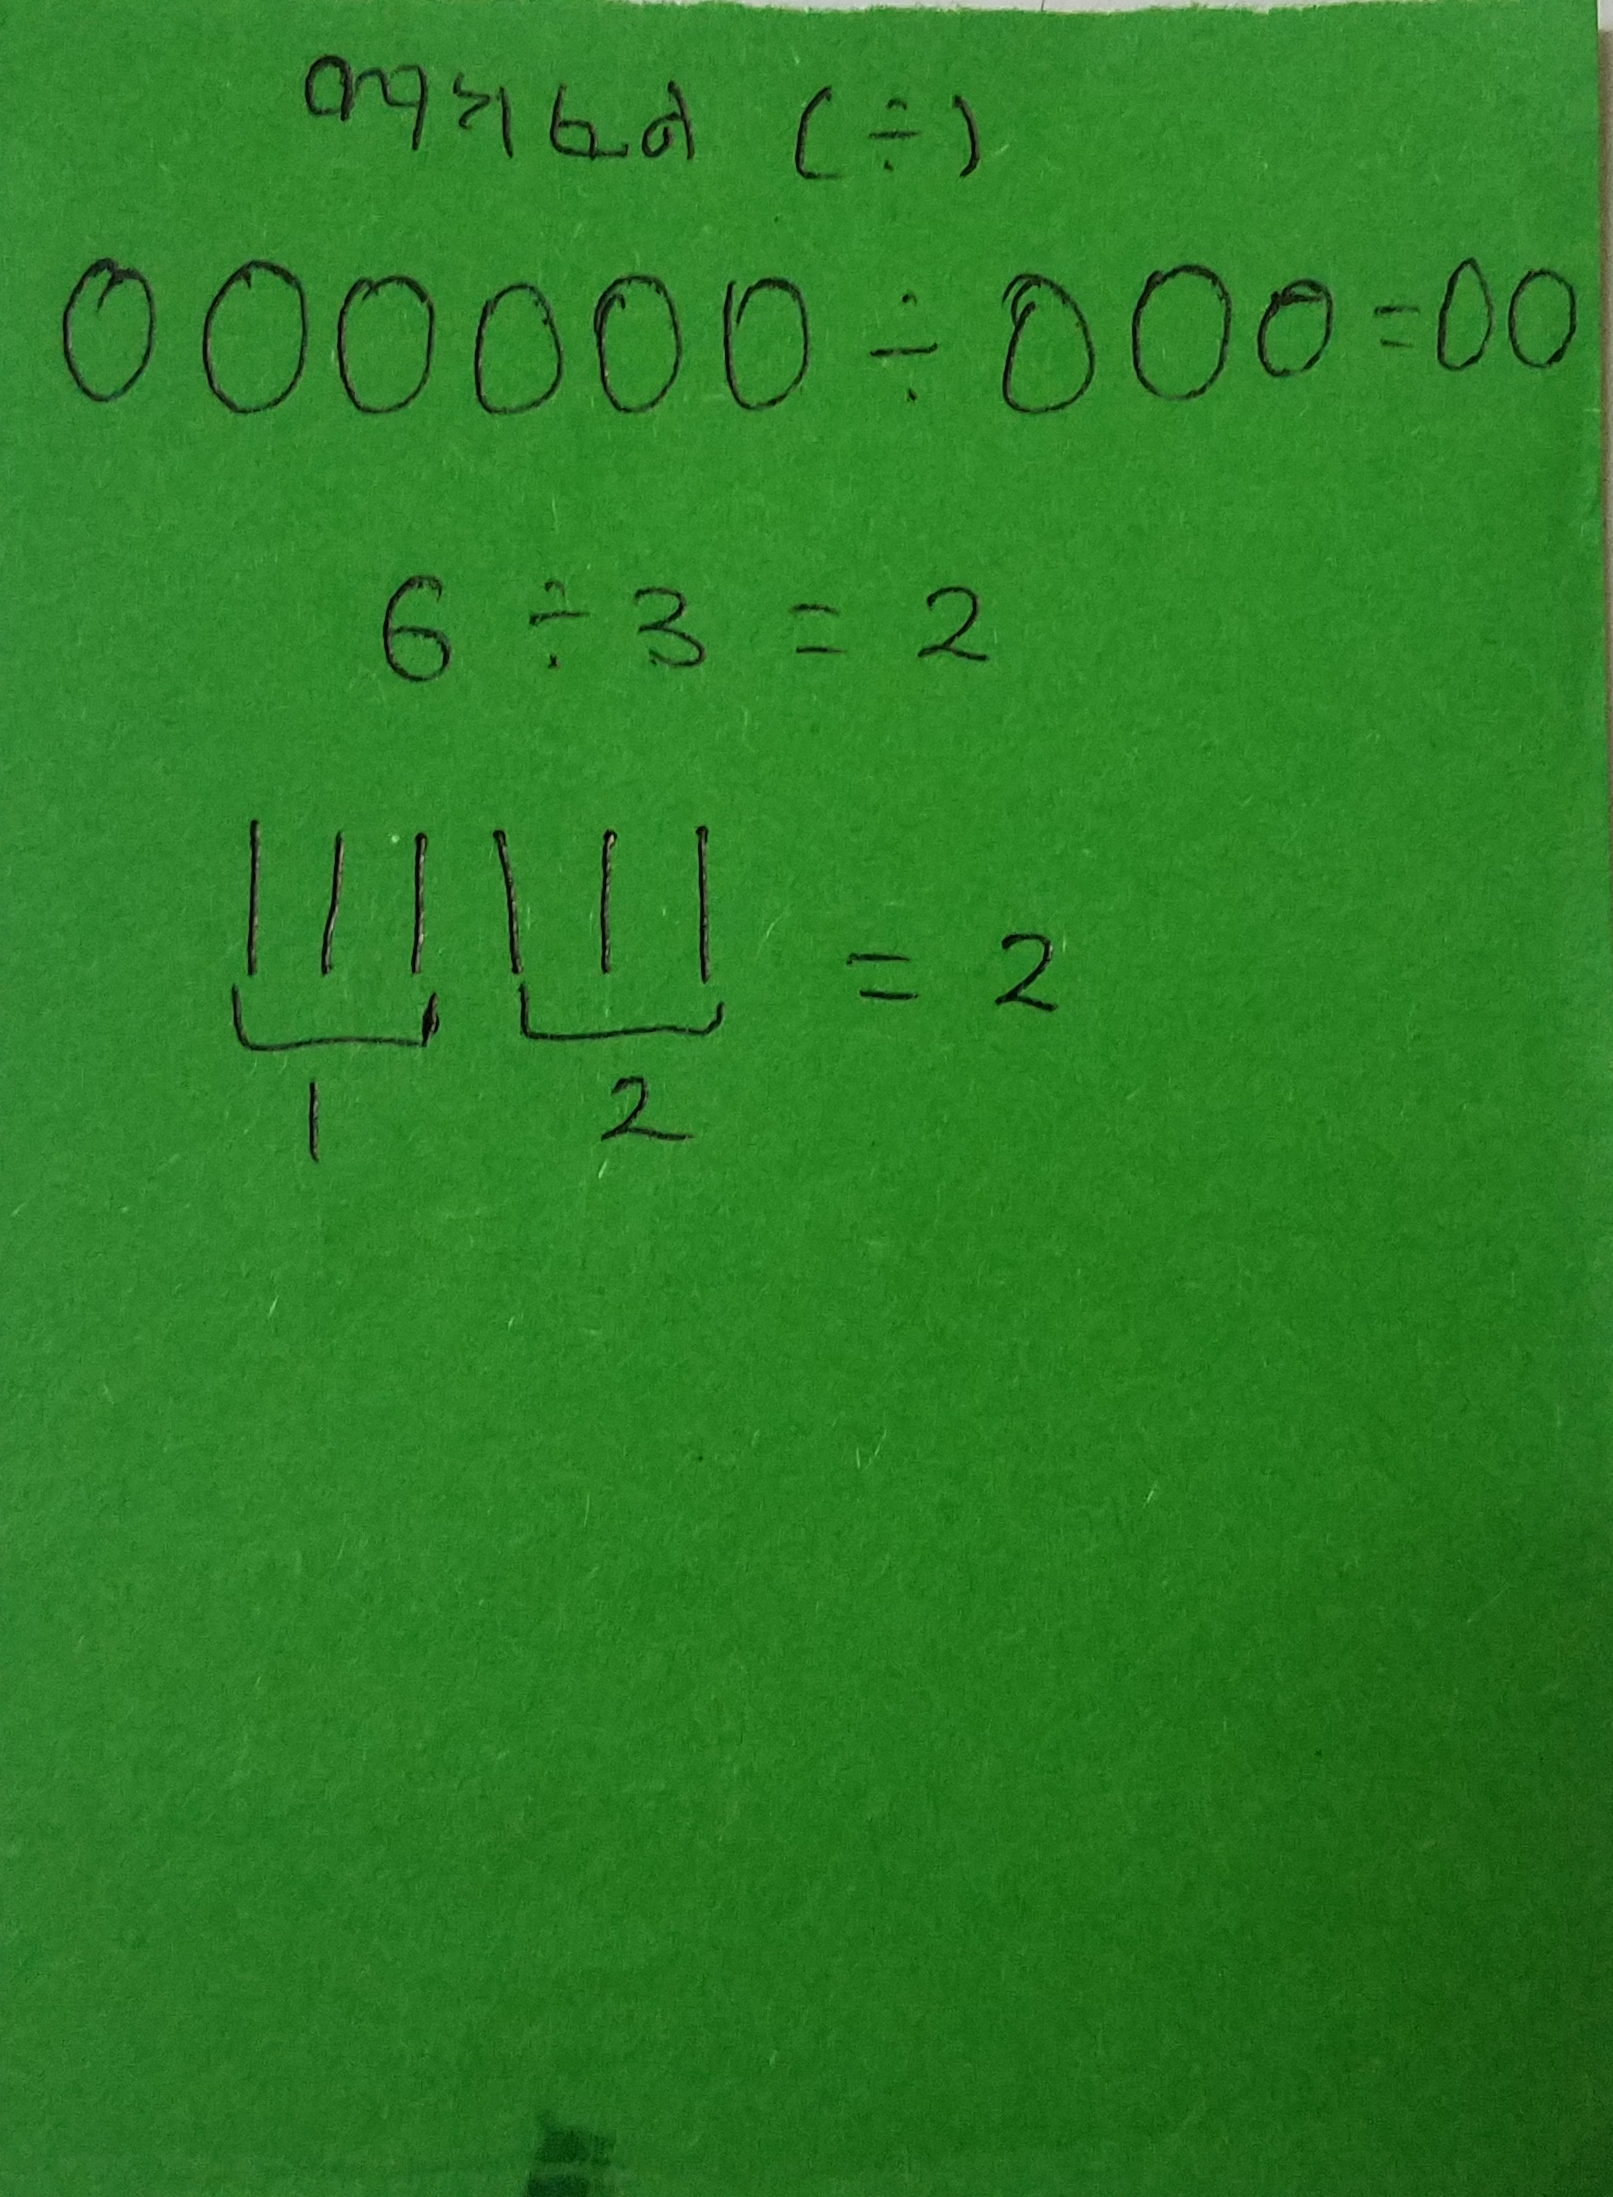 (÷)
0 0 0 0 0 0 ÷ 0 0 0 = 0 0
6 ÷ 3 = 2
| | | | | | = 2
1 2